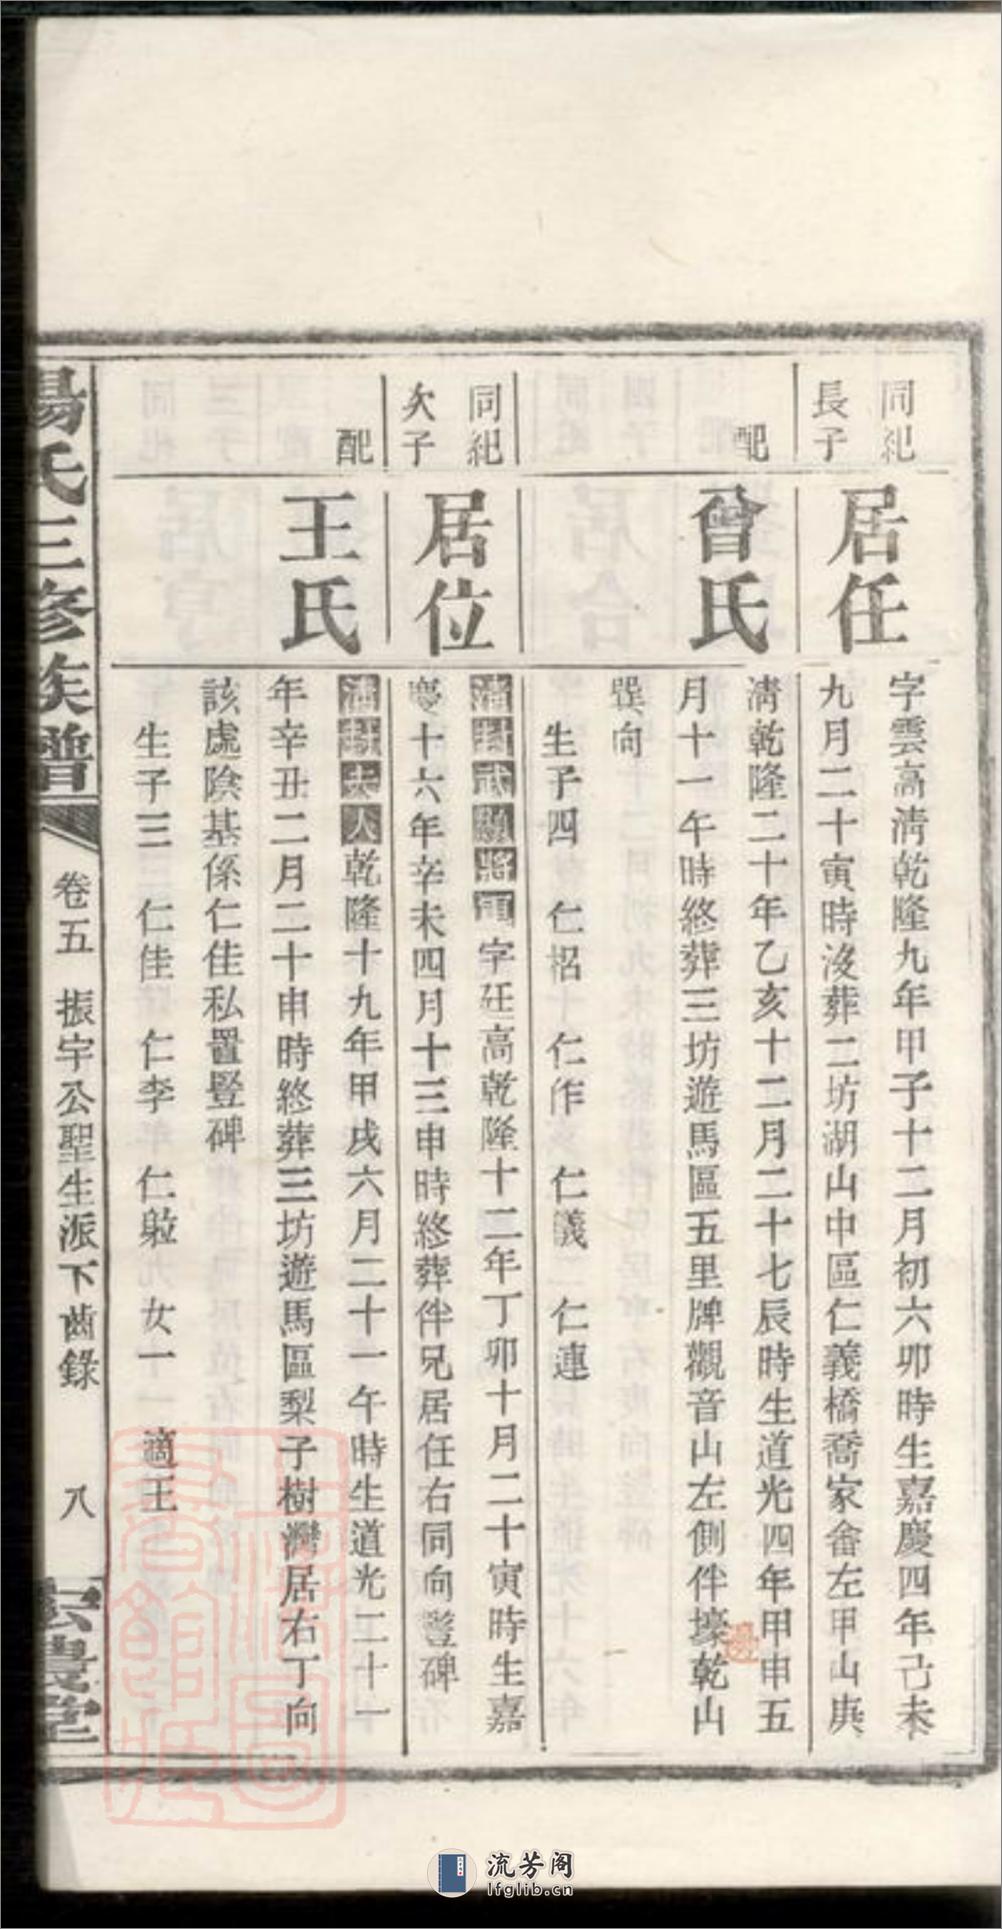 同祀
長子
居任
字雲高清乾隆九年甲子十二月初六卯時生嘉慶四年己未
九月二十寅時沒葬二坊湖山中區仁義橋喬家畲左甲山庚
配
曾氏
清乾隆二十年乙亥十二月二十七辰時生道光四年甲申五
月十一午時終葬三坊遊馬區五里牌觀音山左側伴壕乾山
巽向
生子四 仁柖 仁作 仁義 仁連
同祀
次子
居位
清封武顯將軍字廷高乾隆十二年丁卯十月二十寅時生嘉
慶十六年辛未四月十三申時終葬伴兄居任右同向豎碑
配
王氏
清封夫人乾隆十九年甲戌六月二十一午時生道光二十一
年辛丑二月二十申時終葬三坊遊馬區梨子樹灣居右丁向
該處陰基係仁佳私置豎碑
生子三 仁佳 仁李 女一 適王
氏三修族譜
卷五 振宇公聖生派下齒錄 八
農堂
流芳阁
lfglib.cn